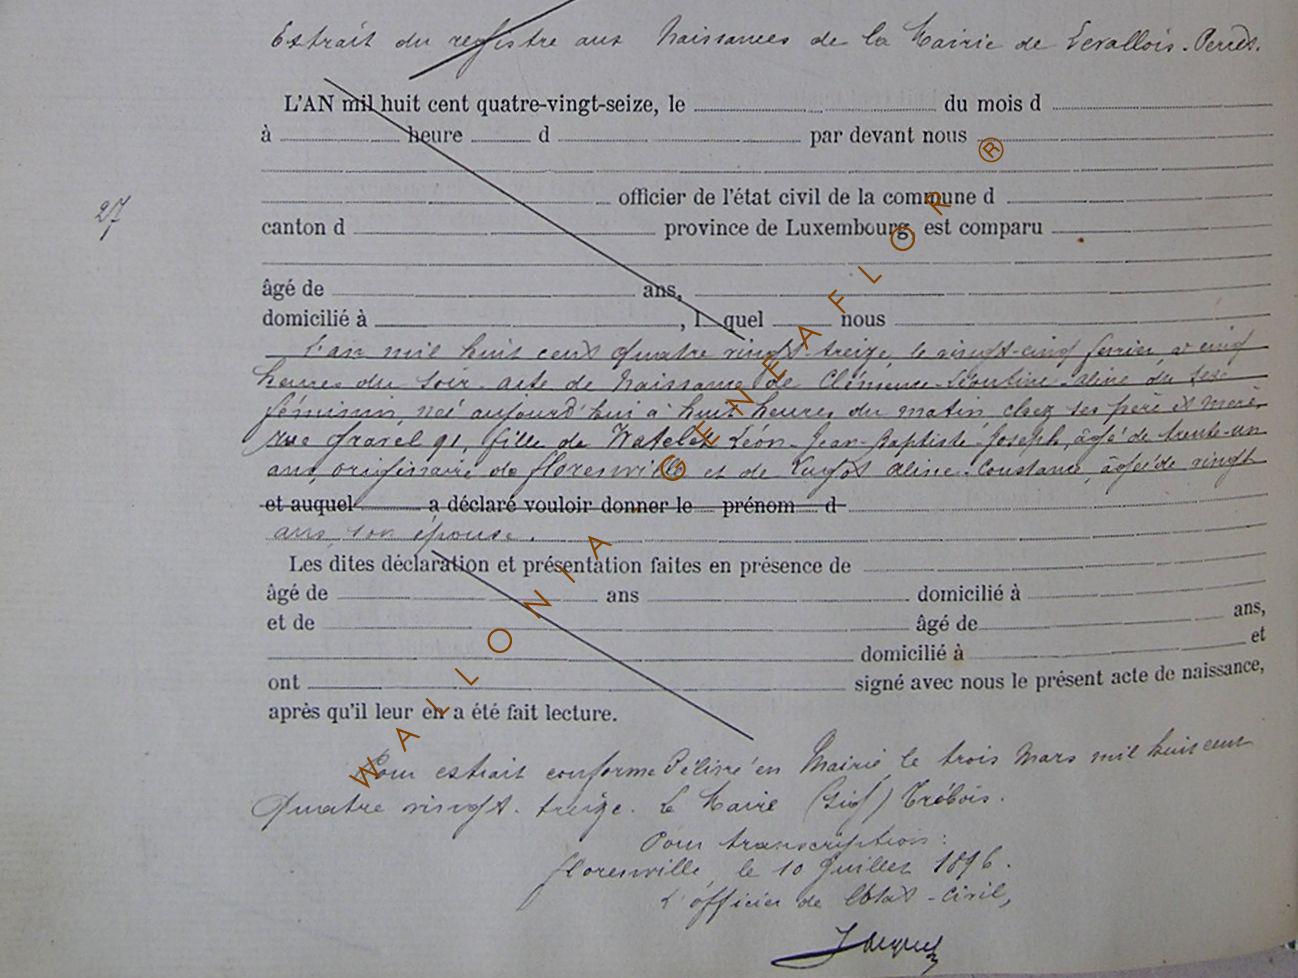 Extrait du registre aux Naissances de la Mairie de Levallois-Perret.
L'AN mil huit cent quatre-vingt-seize, le du mois d
à heure d par devant nous
officier de l'état civil de la commune d
27
canton d province de Luxembourg, est comparu
âgé de ans,
domicilié à , l quel nous
L'an mil huit cent quatre vingt-treize le vingt-cinq février à cinq
heures du soir acte de Naissance de Clémence-Léontine-Aline du sexe
féminin, née aujourd'hui à huit heures du matin, chez ses père et mère,
rue Gravel 91, fille de Watelet Léon-Jean-Baptiste-Joseph, âgé de trente-un
ans, originaire de Florenville et de Aline-Constance, âgée de vingt
et auquel a déclaré vouloir donner le prénom d
ans, son épouse.
Les dites déclaration et présentation faites en présence de
âgé de ans domicilié à
et de âgé de ans,
domicilié à et
ont signé avec nous le présent acte de naissance,
après qu'il leur en a été fait lecture.
Pour extrait conforme Délivré en Mairie le trois Mars mil huit cent
Quatre vingt-treize. Le Maire (Sig) Trébois.
Pour transcription:
Florenville, le 10 Juillet 1896.
L'officier de l'Etat-Civil,
WALLONIA GENEAFLOR ®